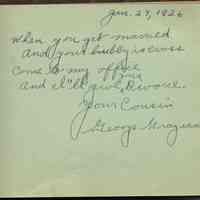 Jan. 24, 1926
When you get married
And your hubby is cross
Come to my office
and I'll give you divorce.
Your Cousin
George